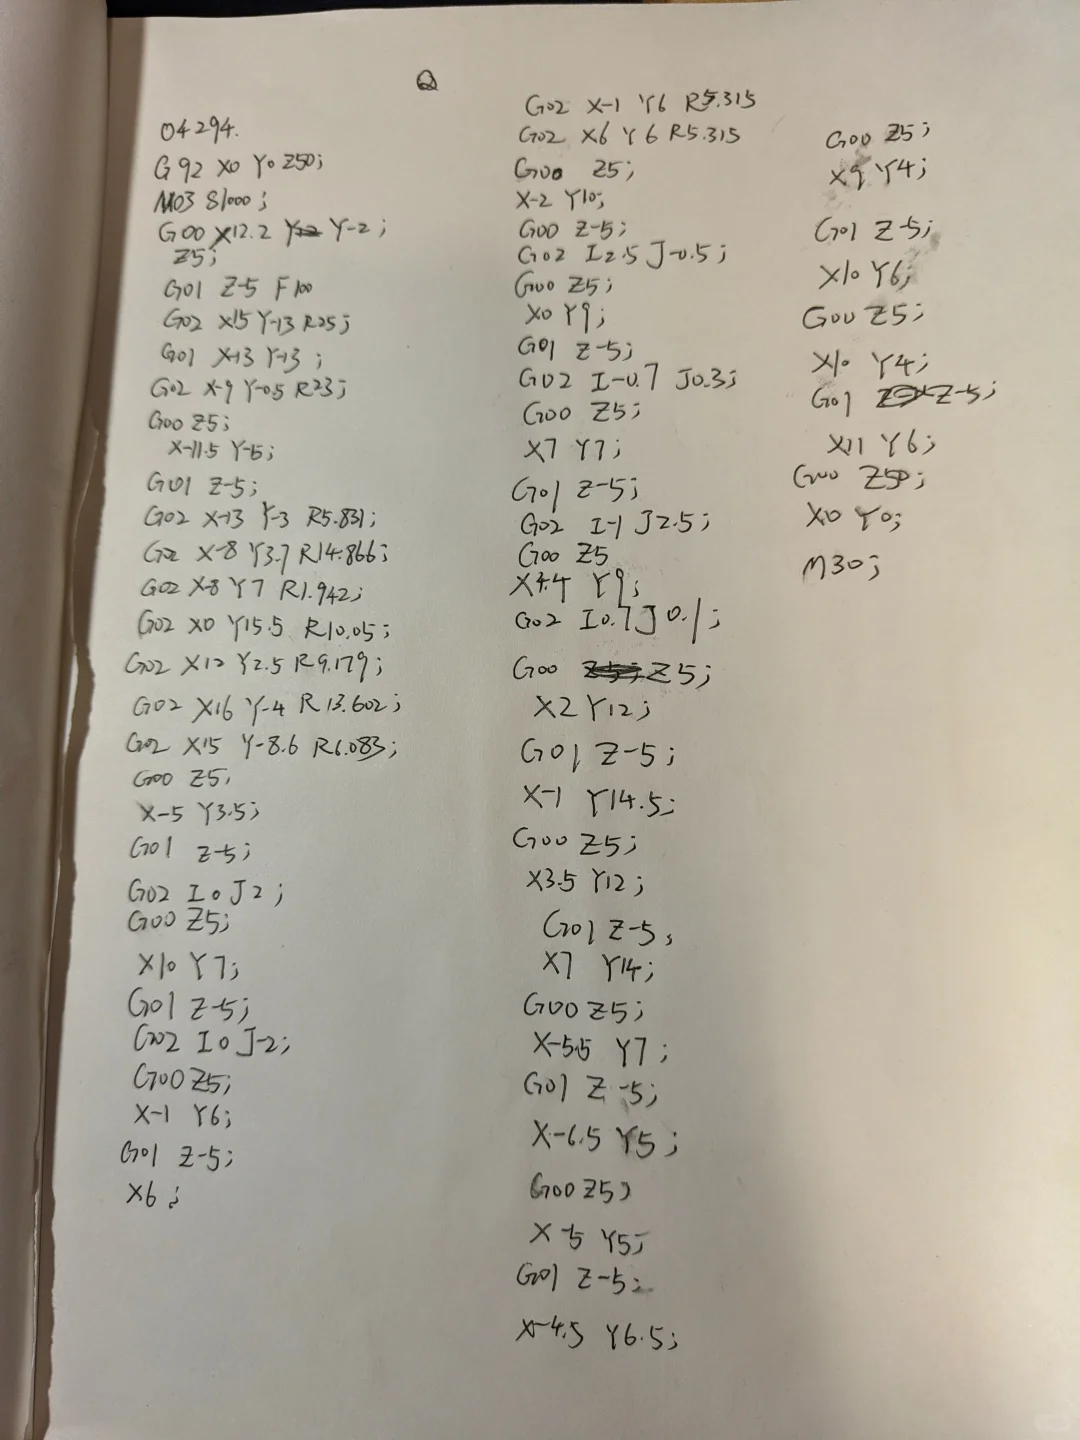 ②
O4294.
G92 X0 Y0 Z50;
M03 S1000;
G00 X12.2 Y-2;
Z5;
G01 Z-5 F100
G02 X15 Y-13 R25;
G01 X-13 Y-13;
G02 X-9 Y-0.5 R23;
G00 Z5;
X-11.5 Y-5;
G01 Z-5;
G02 X-13 Y-3 R5.831;
G02 X-8 Y3.7 R14.866;
G02 X-8 Y7 R1.942;
G02 X0 Y15.5 R10.05;
G02 X12 Y2.5 R9.179;
G02 X16 Y-4 R13.602;
G02 X15 Y-8.6 R6.083;
G00 Z5;
X-5 Y3.5;
G01 Z-5;
G02 I0 J2;
G00 Z5;
X10 Y7;
G01 Z-5;
G02 I0 J-2;
G00 Z5;
X-1 Y6;
G01 Z-5;
X6;
G02 X-1 Y6 R5.315
G02 X6 Y6 R5.315
G00 Z5;
X-2 Y10;
G00 Z-5;
G02 I2.5 J-0.5;
G00 Z5;
X0 Y9;
G01 Z-5;
G02 I-0.7 J0.3;
G00 Z5;
X7 Y7;
G01 Z-5;
G02 I-1 J2.5;
G00 Z5
X4.4 Y9;
G02 I0.7 J0.1;
G00 Z5;
X2 Y12;
G01 Z-5;
X-1 Y14.5;
G00 Z5;
X3.5 Y12;
G01 Z-5;
X7 Y14;
G00 Z5;
X-5.5 Y7;
G01 Z-5;
X-6.5 Y5;
G00 Z5;
X-5 Y5;
G01 Z-5;
X-4.5 Y6.5;
G00 Z5;
X9 Y4;
G01 Z-5;
X10 Y6;
G00 Z5;
X10 Y4;
G01 Z-5;
X11 Y6;
G00 Z50;
X0 Y0;
M30;